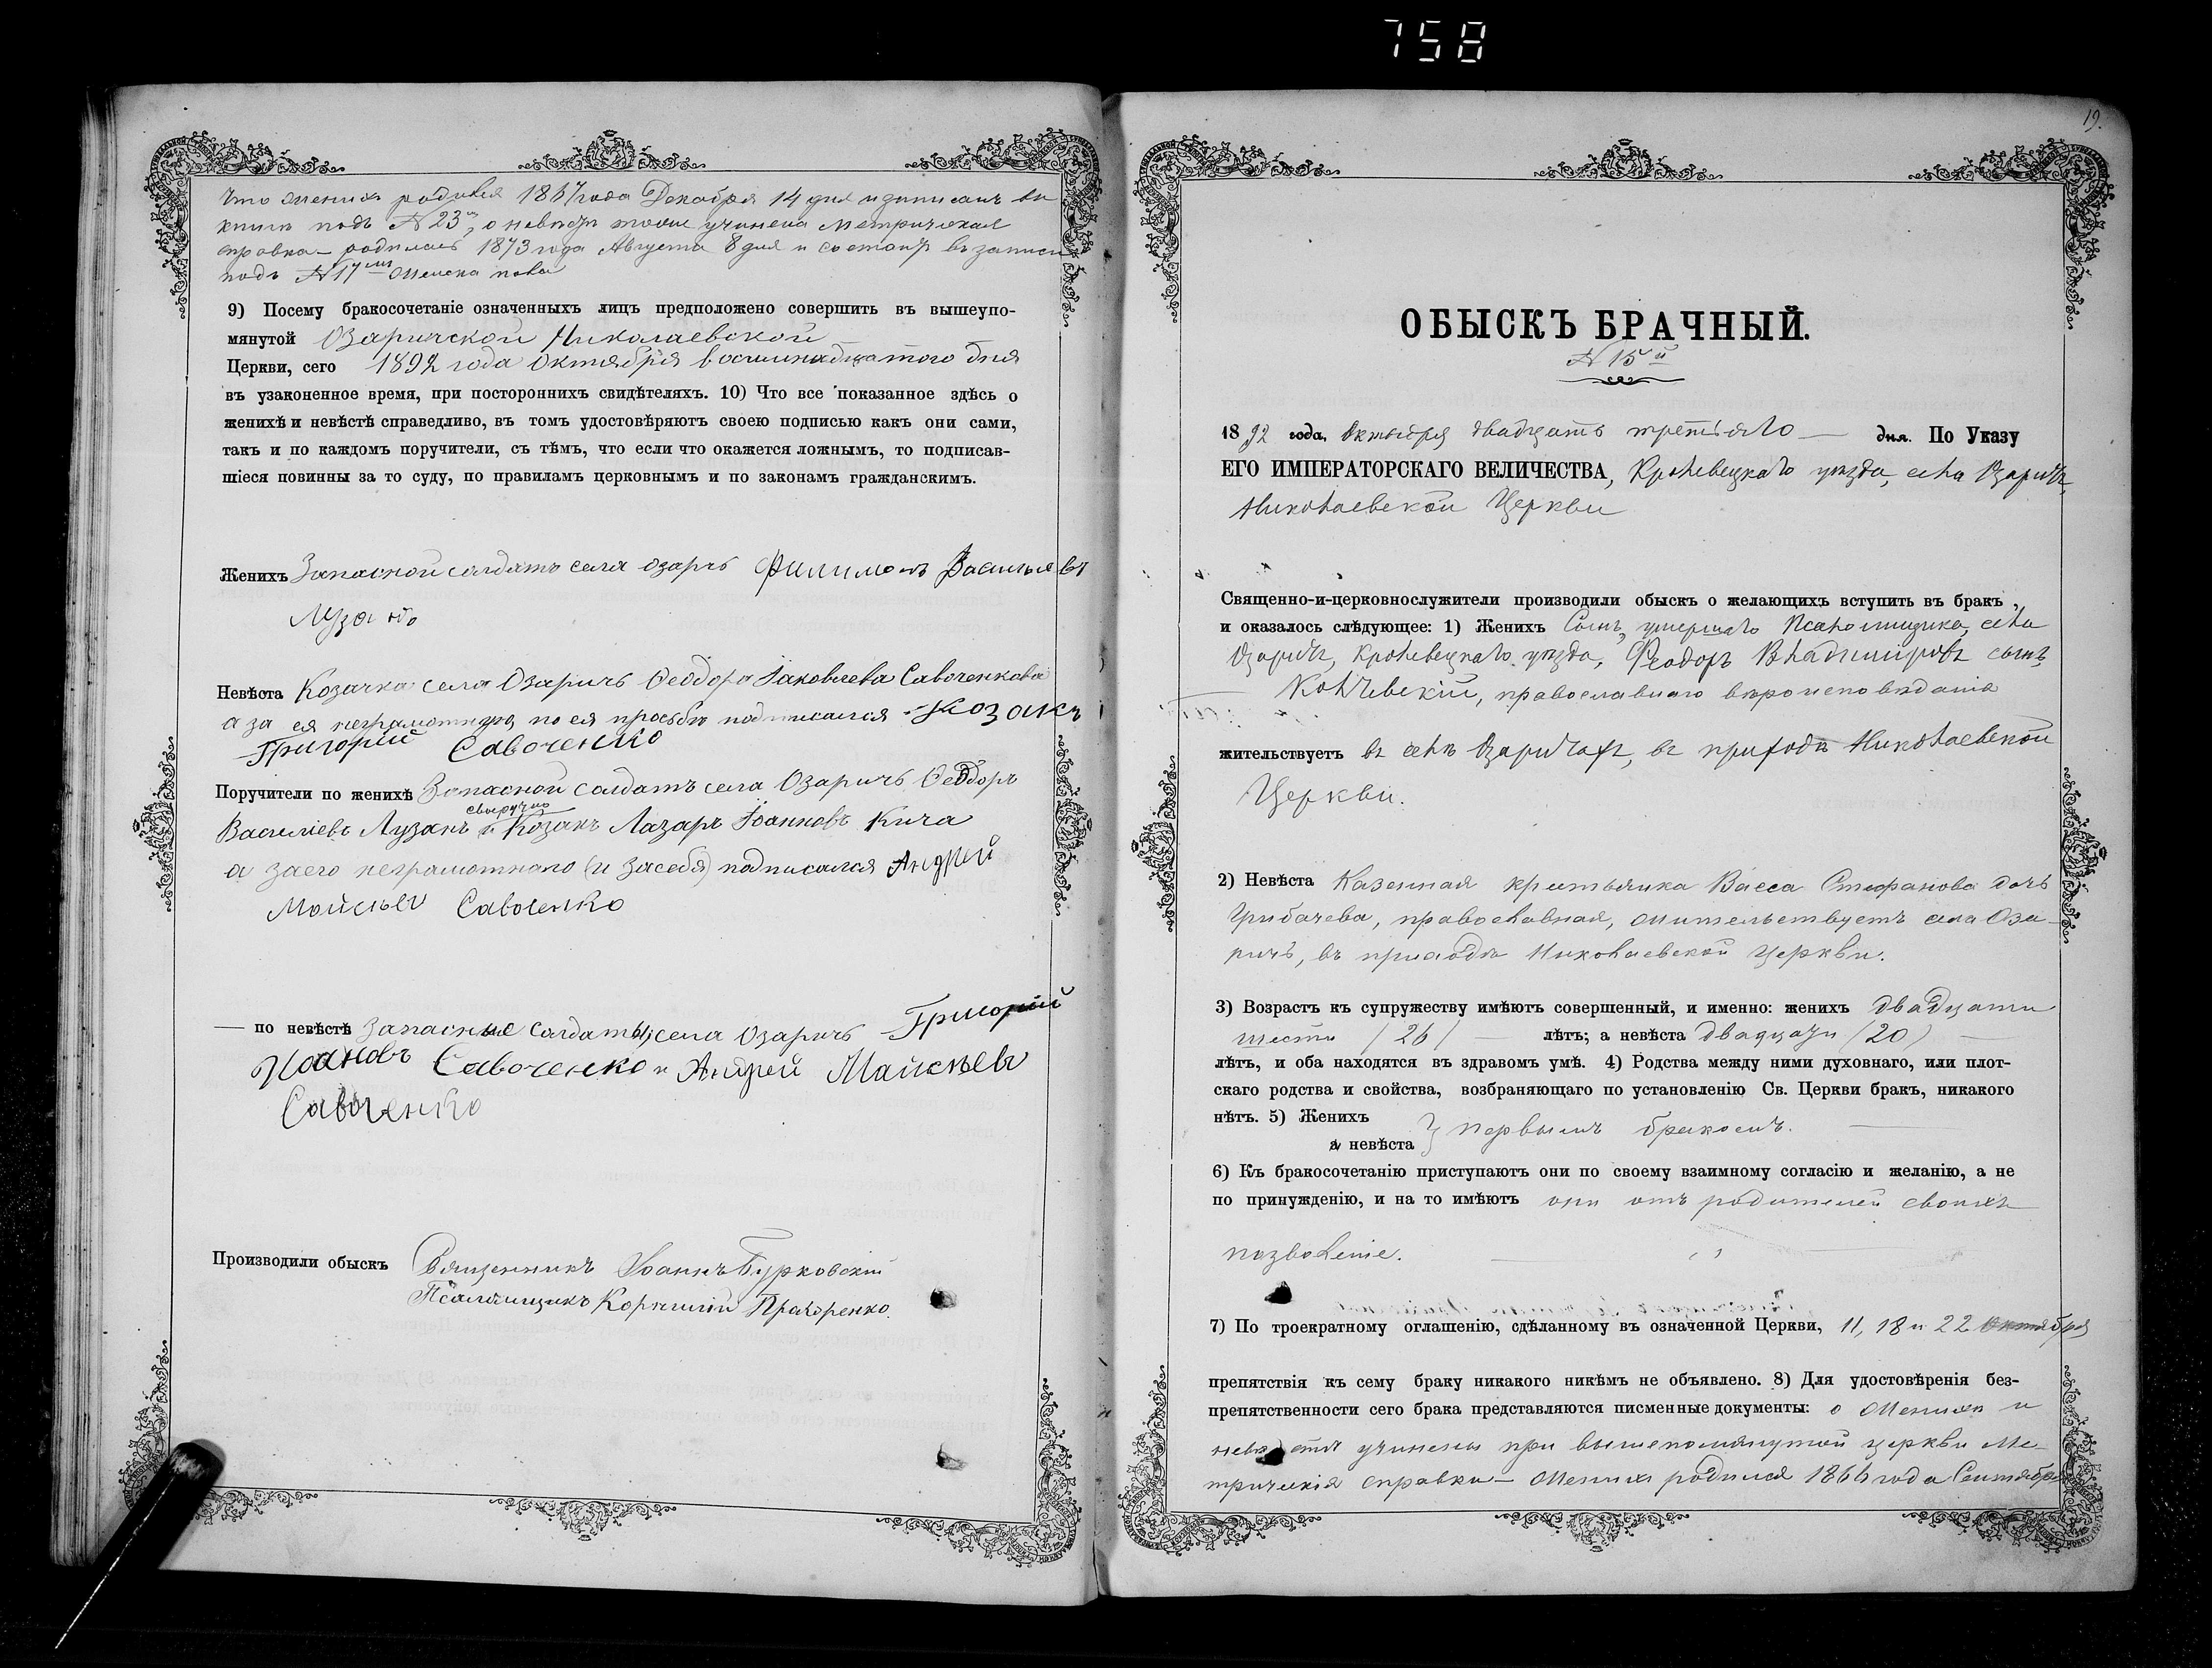 758
что жених родился 1867 года Декабря 14 дня и записанъ въ
книги подъ №23м, о невѣсте тоже учинена метрическая
справка – родилась 1873 года Августа 8 дня и состоитъ въ записи
подъ №17мъ женска пола
9) Посему бракосочетаніе означенныхъ лицъ предположено совершить въ вышеупо-
мянутой Озаричской Николаевской
Церкви, сего 1892 года Октября восемнадцатого дня
въ узаконенное время, при постороннихъ свидѣтеляхъ. 10) Что все показанное здѣсь о
женихѣ и невѣстѣ справедливо, въ томъ удостовѣряютъ своею подписью какъ они сами,
такъ и по каждомъ поручители, съ тѣмъ, что если что окажется ложнымъ, то подписав-
шіеся повинны за то суду, по правиламъ церковнымъ и по законамъ гражданскимъ.
Женихъ Запасной солдатъ села Озаричъ Филимонъ Васильевъ
Лузанъ
Невѣста Козачка села Озаричъ Феодора Іаковлева Савоченкова
а за ея неграмотную по ея просьбѣ подписался Козакъ
Григорий Савоченко
Поручители по женихѣ Запасной солдатъ села Озаричъ Феодоръ
своеручно
Василіевъ Лузанъ и Козакъ Лазаръ Іоанновъ Кича
а за его неграмотного (и за себя) подписался Андрей
Мойсѣев Савоченко
— по невѣстѣ запасные солдаты села Озаричъ Григорий
Иоановъ Савоченко и Андрей Мойсѣев
Савоченко
Производили обыскъ Священникъ Іоаннъ Бурковскій
Псаломщикъ Корнилій Прохоренко.
19.
ОБЫСКЪ БРАЧНЫЙ.
№ 15й
1892 года, Октября двадцать третьяго — дня. По Указу
ЕГО ИМПЕРАТОРСКАГО ВЕЛИЧЕСТВА, Кролевецкаго уѣзда, села Озаричъ,
Николаевской Церкви
Священно-и-церковнослужители производили обыскъ о желающихъ вступить въ бракъ,
и оказалось слѣдующее: 1) Женихъ Сынъ умершаго Псаломщика, села
Озаричъ, Кролевецкаго уѣзда, Феодоръ Владимировъ сынъ
Колчевскій, православнаго вѣроисповѣданія
жительствуетъ въ селѣ Озаричахъ, въ приходѣ Николаевской
Церкви.
2) Невѣста Казенная крестьянка Васса Стефанова дочь
Грибачева, православная, жительствуетъ села Оза-
ричъ, въ приходѣ Николаевской церкви.
3) Возрастъ къ супружеству имѣютъ совершенный, и именно: женихъ двадцати
шести /26/ — лѣтъ; а невѣста двадцати /20/ —
лѣтъ, и оба находятся въ здравомъ умѣ. 4) Родства между ними духовнаго, или плот-
скаго родства и свойства, возбраняющаго по установленію Св. Церкви бракъ, никакого
нѣтъ. 5) Женихъ
и невѣста } первымъ бракомъ. —
6) Къ бракосочетанію приступаютъ они по своему взаимному согласію и желанію, а не
по принужденію, и на то имѣютъ они отъ родителей своихъ
позволеніе.
7) По троекратному оглашенію, сдѣланному въ означенной Церкви, 11, 18 и 22 октября
препятствія къ сему браку никакого никѣмъ не объявлено. 8) Для удостовѣренія без-
препятственности сего брака представляются писменные документы: о женихѣ и
невѣстѣ учинены при вышепомянутой церкви Ме-
трическія справки – Женихъ родился 1866 года Сентября